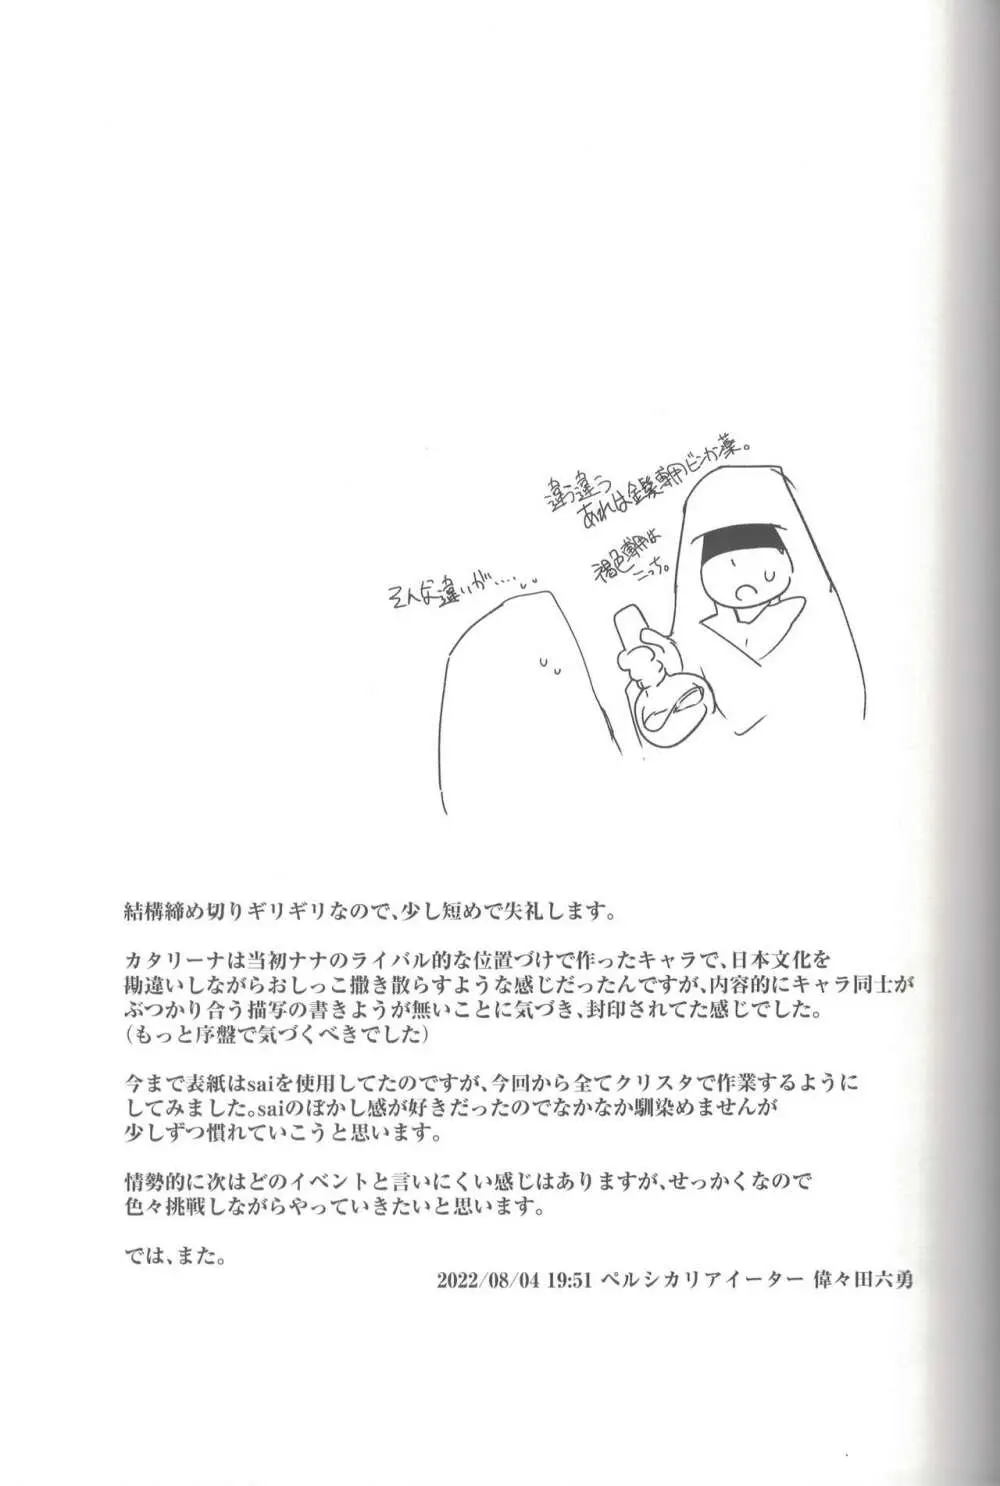 違う違う
あれは金髪専用ビンカン薬。
褐色専用は
こっち。
そんな違いが‥‥
結構締め切りギリギリなので、少し短めで失礼します。
カタリーナは当初ナナのライバル的な位置づけで作ったキャラで、日本文化を
勘違いしながらおしっこ撒き散らすような感じだったんですが、内容的にキャラ同士が
ぶつかり合う描写の書きようが無いことに気づき、封印されてた感じでした。
（もっと序盤で気づくべきでした）
今まで表紙はsaiを使用してたのですが、今回から全てクリスタで作業するように
してみました。saiのぼかし感が好きだったのでなかなか馴染めませんが
少しずつ慣れていこうと思います。
情勢的に次はどのイベントと言いにくい感じはありますが、せっかくなので
色々挑戦しながらやっていきたいと思います。
では、また。
2022/08/04 19:51 ペルシカリアイーター 偉々田六勇